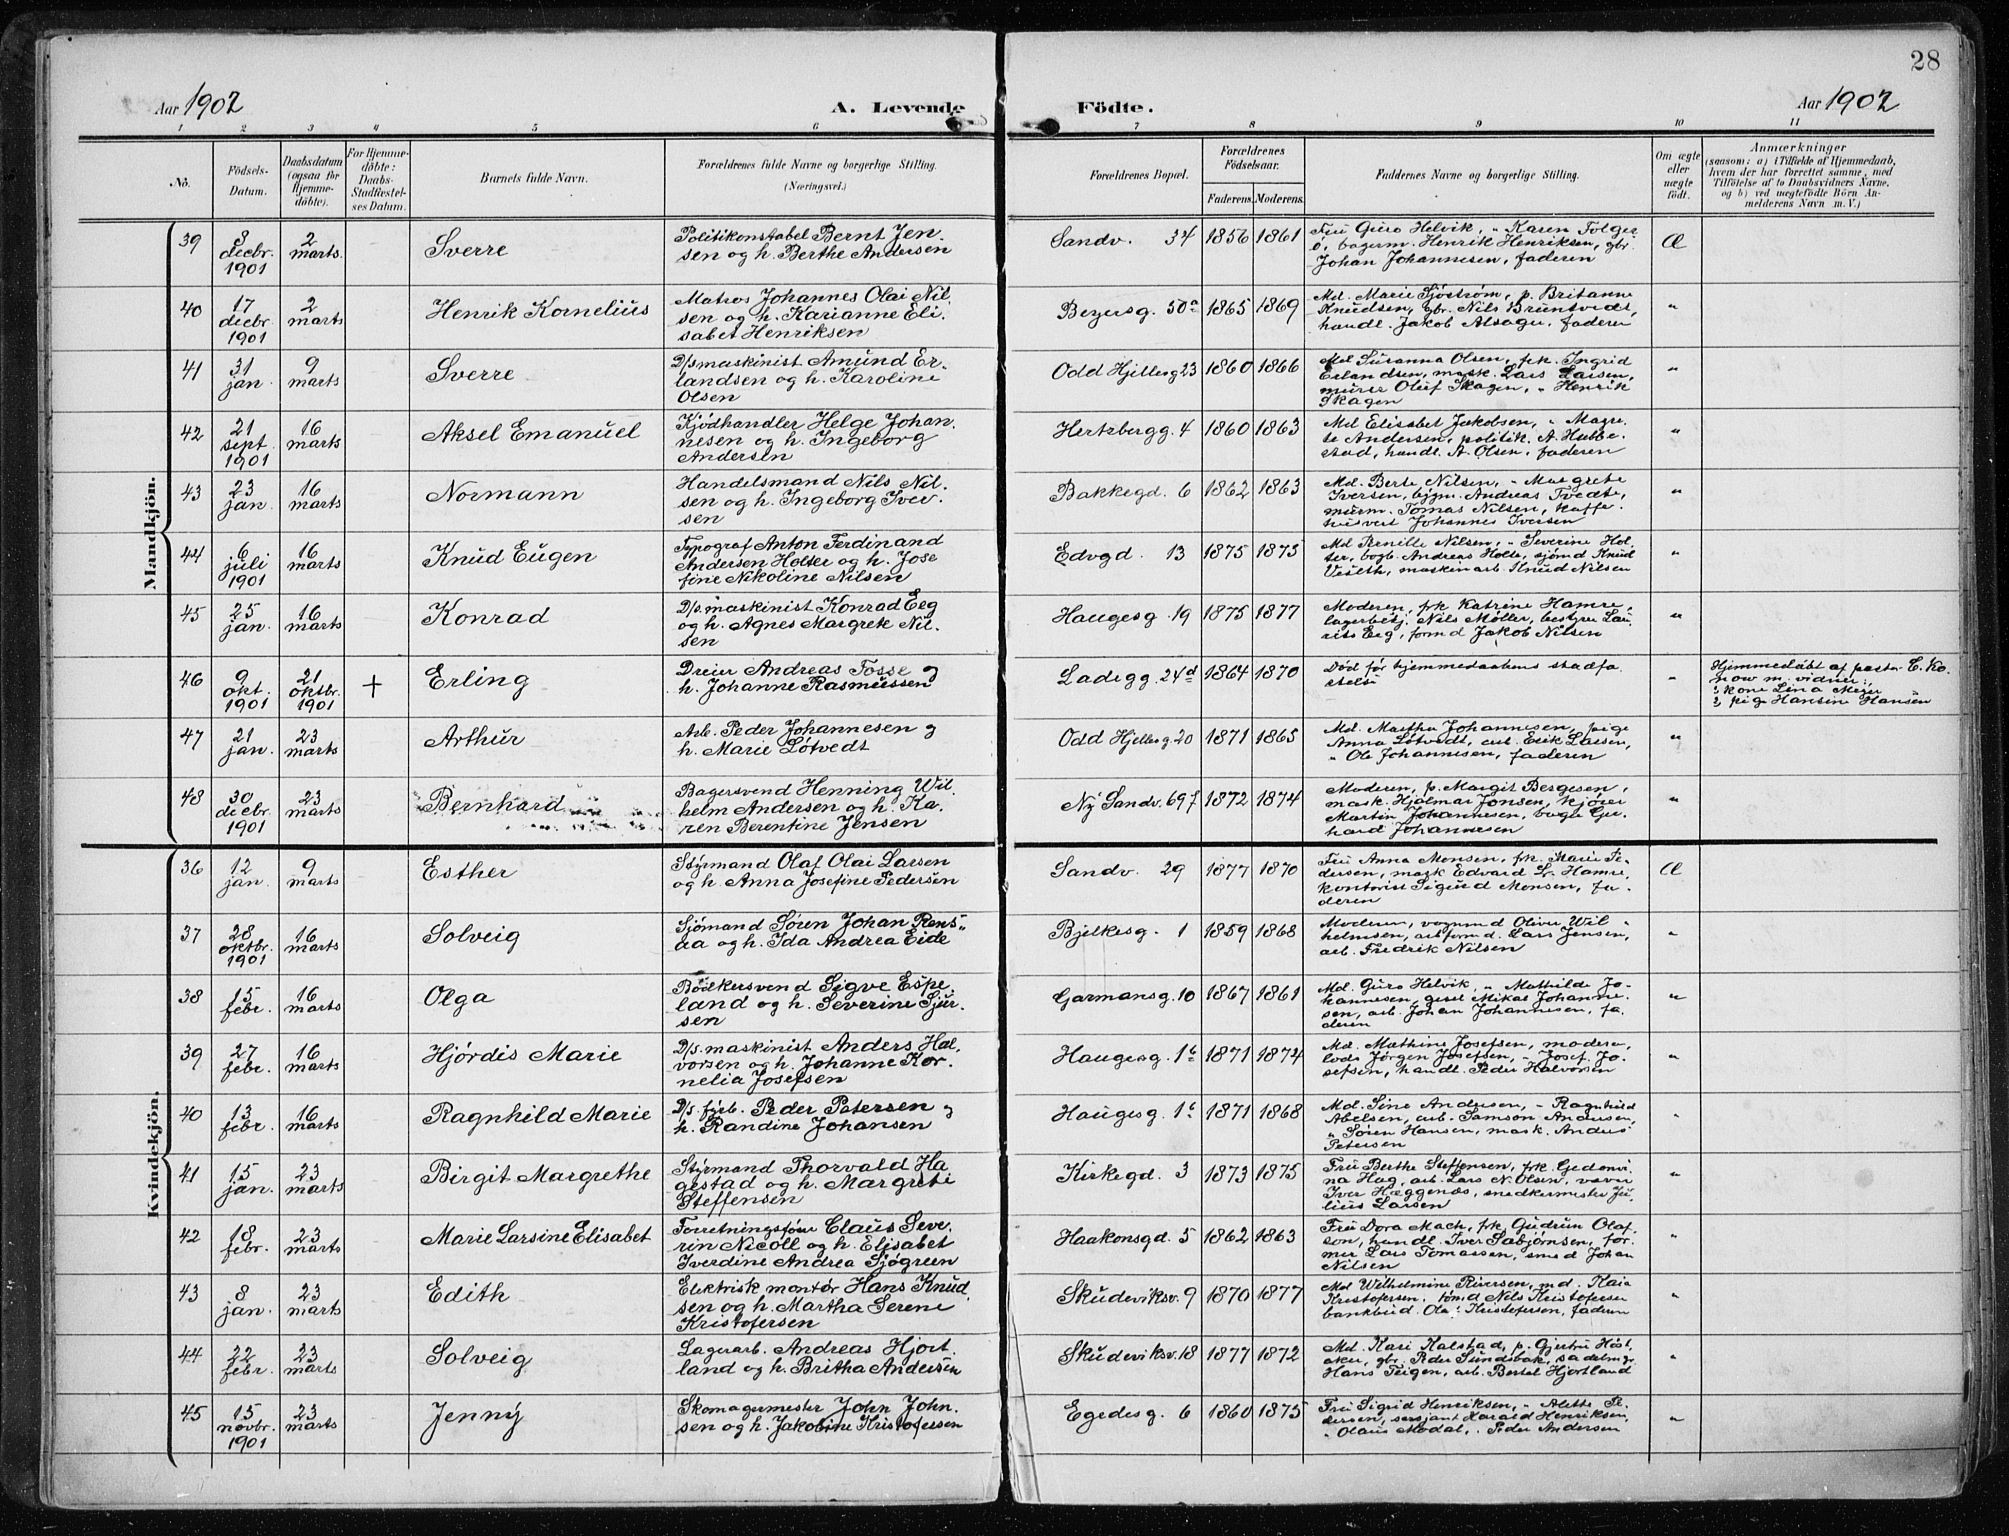 28
Aar 1902
A. Levende Födte.
Aar 1902
1 2 3 4 5 6 7 8 9 10 11
No.
Födsels-
Datum.
Daabsdatum
(ogsaa for
Hjemme-
döbte).
For Hjemme-
döbte:
Daabs-
Stadfæstel-
ses Datum.
Barnets fulde Navn.
Forældrenes fulde Navne og borgerlige Stilling.
(Næringsvei.)
Forældrenes Bopæl.
Forældrenes
Födselsaar.
Faderens. Moderens.
Faddernes Navne og borgerlige Stilling.
Om ægte
eller
uægte
födt.
Anmærkninger
(saasom: a) i Tilfælde af Hjemmedaab,
hvem der har forrettet samme, med
Tilföielse af to Daabsvidners Navne,
og b) ved uægtefödte Börn An-
melderens Navn m. V.)
Mandkjön.
39 8 decbr. 1901 2 marts Sverre
Politikonstabel Bernt Jen-
sen og h. Berthe Andersen
Sandv. 34 1856 1861
Fru Guro Helvik, " Karen Folger
ö, bagerm. Henrik Henriksen, gbr.
Johan Johannesen, faderen
Æ
40 17 decbr. 1901 2 marts Henrik Kornelius
Matros Johannes Olai Nil-
sen og h. Karianne Eli-
sabet Henriksen
Bezersg. 50a 1865 1869
Md. Marie Sjöström, p. Britanne
Knudsen, gbr. Nils Bruntveds,
handl. Jakob Alsager, faderen
"
41 31 jan. 9 marts Sverre
D/s maskinist Amund Er-
landsen og h. Karoline
Olsen
Odd Hjellesg 23 1860 1866
Md Susanna Olsen, frk. Ingrid
Erlandsen, mask. Lars Larsen,
murer Oluf Skagen, " Henrik
Skagen
"
42 21 sept. 1901 16 marts Aksel Emanuel
Kjödhandler Helge Johan-
nesen og h. Ingeborg
Andersen
Hertzbergg. 4 1860 1863
Md Elisabet Jakobsen, " Magre-
te Andersen, politik. A. Hubbe-
stad, handl. A. Olsen, faderen
"
43 23 jan. 16 marts Normann
Handelsmand Nils Nil-
sen og h. Ingeborg Iver-
sen
Bakkegd. 6 1862 1863
Md. Berte Nilsen, " Margrete
Iversen, bygm. Andreas Tvedte,
murm. Tomas Nilsen, kaffe-
husvert Johannes Iversen
"
44 6 juli 1901 16 marts Knud Eugen
Typograf Anton Ferdinand
Andersen Holter og h. Jose
fine Nikoline Nilsen
Edvgd. 13 1875 1875
Md Pernille Nilsen, " Severine Hol-
ter, bogb. Andreas Holte, sjömd Knud
Veseth, maskinarb. Knud Nilsen
"
45 25 jan. 16 marts Konrad
D/s. maskinist Konrad Eeg
og h. Agnes Margrete Nil-
sen
Haugesg. 19 1875 1877
Moderen, frk Katrine Hamre,
lagerbetj. Nils Møller, bestyrer Lau-
rits Eeg, formd Jakob Nilsen
"
46 9 okt. 1901 21 oktbr. 1901 + Erling
Dreier Andreas Fosse og
h. Johanne Rasmussen
Ladegg. 24d 1864 1870
Död før hjemmedaabens stadfæ-
stelse
"
Hjemmedøbt af pastor C. Ko-
now m. vidner:
1, kone Lina Meyer
2, pige Hansine Hansen
47 21 jan. 23 marts Arthur
Arb. Peder Johannesen og
h. Marie Løtvedt
Odd Hjellesg. 20 1871 1865
Md. Martha Johannesen, pige
Anna Løtvedt, arb. Erik Larsen,
" Ole Johannesen, faderen
"
48 30 decbr. 1901 23 marts Bernhard
Bagersvend Henning Wil-
helm Andersen og h. Ka-
ren Berentine Jensen
Ny Sandv. 69f 1872 1874
Moderen, p. Margit Bergesen,
mask. Hjalmar Jonsen, kjører
Martin Johannesen, bagl Ger-
hard Johannesen
"
Kvindekjön.
36 12 jan. 9 marts Esther
Styrmand Olaf Olai Larsen
og h. Anna Josefine Pedersen
Sandv. 29 1877 1870
Fru Anna Monsen, frk. Marie Pe-
dersen, mask Edvard L. Hamre,
kontorist Sigurd Monsen, fa-
deren
Æ
37 28 oktbr. 1901 16 marts Solveig
Sjömand Søren Johan Rens-
aa og h. Ida Andrea Eide
Bjelkesg. 1 1859 1868
Moderen, vognmd Oliver Wil-
helmsen, arbformd. Lars Jensen,
arb. Fredrik Nilsen
"
38 15 febr. 16 marts Olga
Bödkersvend Sigve Espe-
land og h. Severine Sjur-
sen
Garmansg. 10 1867 1861
Md. Guro Helvik, " Mathilde Jo-
hannesen, gesel Mikal Johanne-
sen, arb. Johan Johannesen, fa-
deren
"
39 27 febr. 16 marts Hjördis Marie
D/s. maskinist Anders Hal-
vorsen og h. Johanne Kor-
nelia Josefsen
Haugesg. 1c 1871 1874
Md. Mathine Josefsen, moderen,
lods Jørgen Josefsen, " Josef Jo-
sefsen, handl. Peder Halvorsen
"
40 13 febr. 16 marts Ragnhild Marie
D/s. fyrb. Peder Petersen og
h. Randine Johansen
Haugesg. 1c 1871 1868
Md. Sine Andersen, " Ragnhild
Abelsen, arb. Samson Andersen,
" Søren Hansen, mask. Anders
Petersen
"
41 15 jan. 23 marts Birgit Margrethe
Styrmand Thorvald Ha-
gestad og h. Margrete
Steffensen
Kirkegd. 3 1873 1875
Fru Berthe Steffensen, frk. Gedovi-
na Hag, arb. Lars N. Olsen, væver
Iver Hæggenæs, snedkermester Ju-
lius Larsen
"
42 18 febr. 23 marts Marie Larsine Elisabet
Forretningsfører Claus Seve-
rin Nicoll og h. Elisabet
Iverdine Andrea Sjögreen
Haakonsgd. 5 1862 1863
Fru Dora Mach, frk. Gudrun Olaf-
son, handl. Iver Sabjørnsen, før-
mer Lars Tomassen, smed Johan
Nilsen
"
43 8 jan. 23 marts Edith
Elektrisk montør Hans Knud-
sen og h. Martha Serene
Kristofersen
Skudeviksv. 9 1870 1877
Md Wilhelmine Riversen, md. Kaia
Kristofersen, tömd Nils Kristofersen
bankbud. Ola Kristofersen, faderen
"
44 22 febr. 23 marts Solveig
Lagerarb. Andreas Hjort-
land og h. Britha Andersen
Skudeviksv. 18 1877 1872
Md. Kari Kalstad, p. Gjertru Høst-
aker, gbr. Peder Sundsbak, sadelmgr
Hans Teigen, arb. Bertel Hjortland
"
45 15 novbr. 1901 23 marts Jenny
Skomagermester John John-
sen og h. Jakobine Kristofersen
Egedesg. 6 1860 1875
Fru Sigrid Henriksen, " Alette Pe-
dersen, sersjant Harald Henriksen,
" Olaus Modal, " Peder Andersen
"